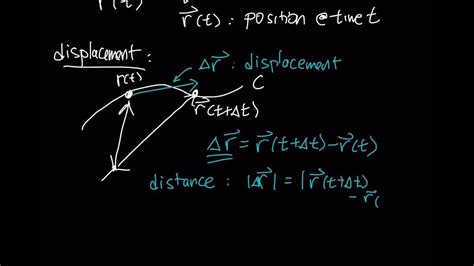 r⃗(t)
r⃗(t) : position @ time t
displacement :
Δr⃗ : displacement
r(t)
C
r⃗(t+Δt)
Δr⃗ = r⃗(t+Δt) - r⃗(t)
distance : |Δr⃗| = |r⃗(t+Δt)
- r⃗(